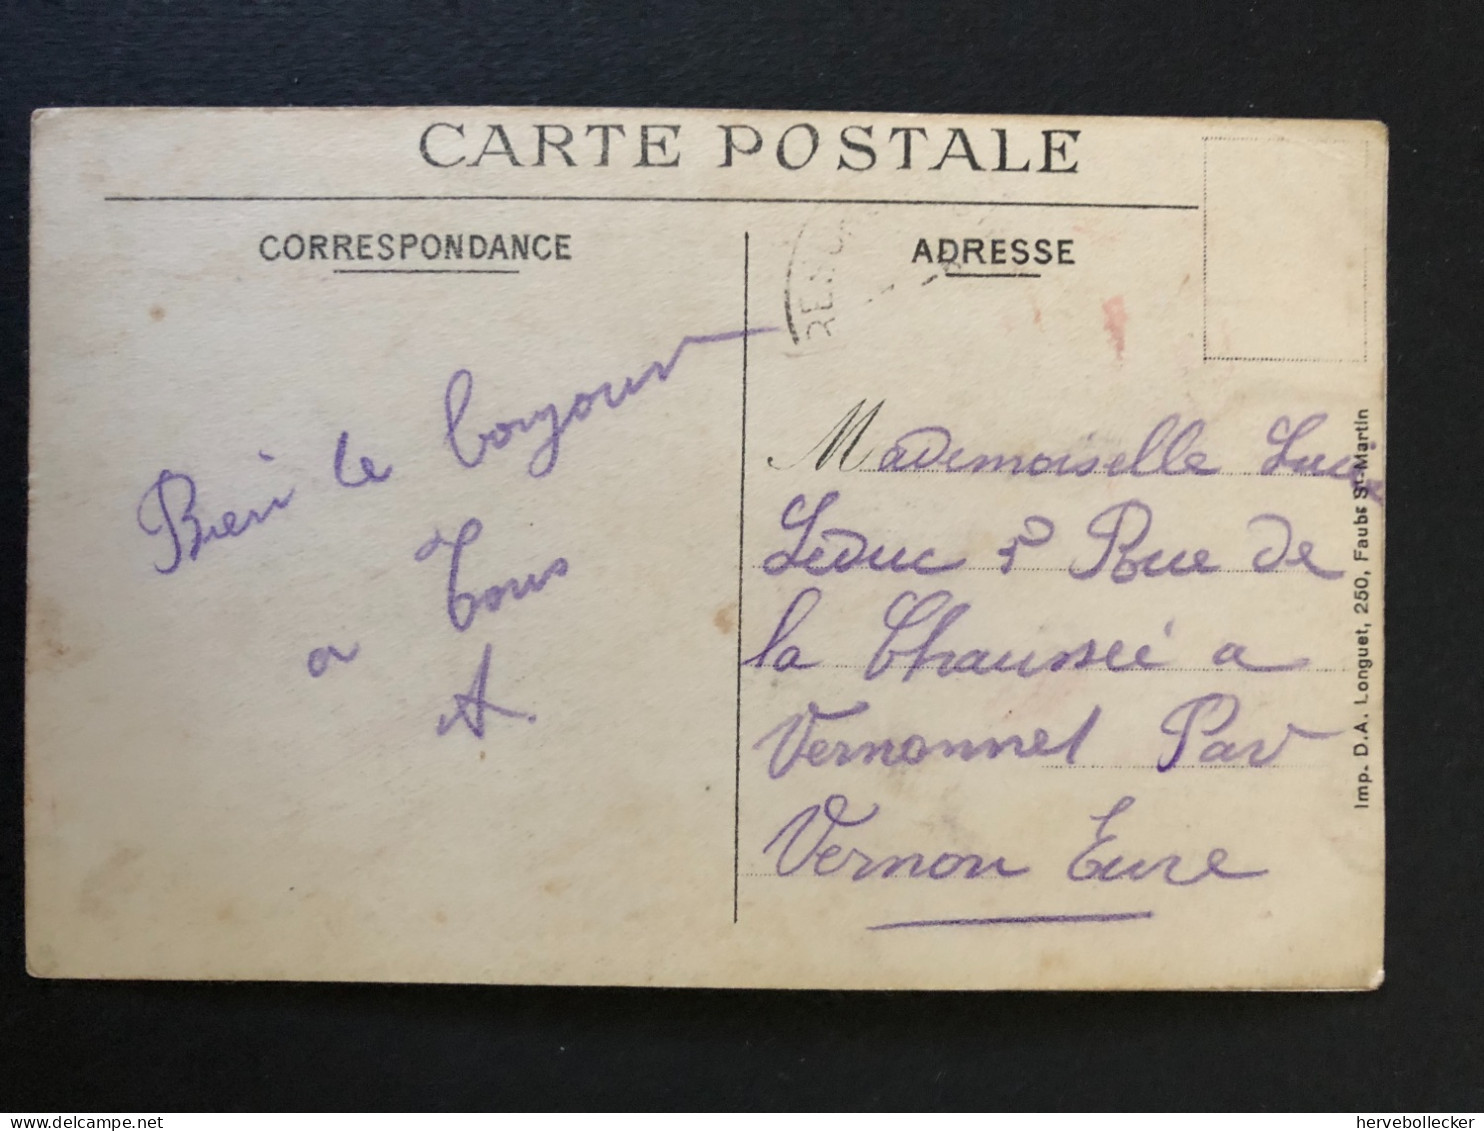 CARTE POSTALE
CORRESPONDANCE
ADRESSE
Bien le bonjour
a Tous
A.
Mademoiselle Lucie
Leduc Rue de
la Chaussée a
Vernonnet Par
Vernon Eure
Imp. D.A. Longuet, 250, Faubg St-Martin
delcampe.net
hervebollecker